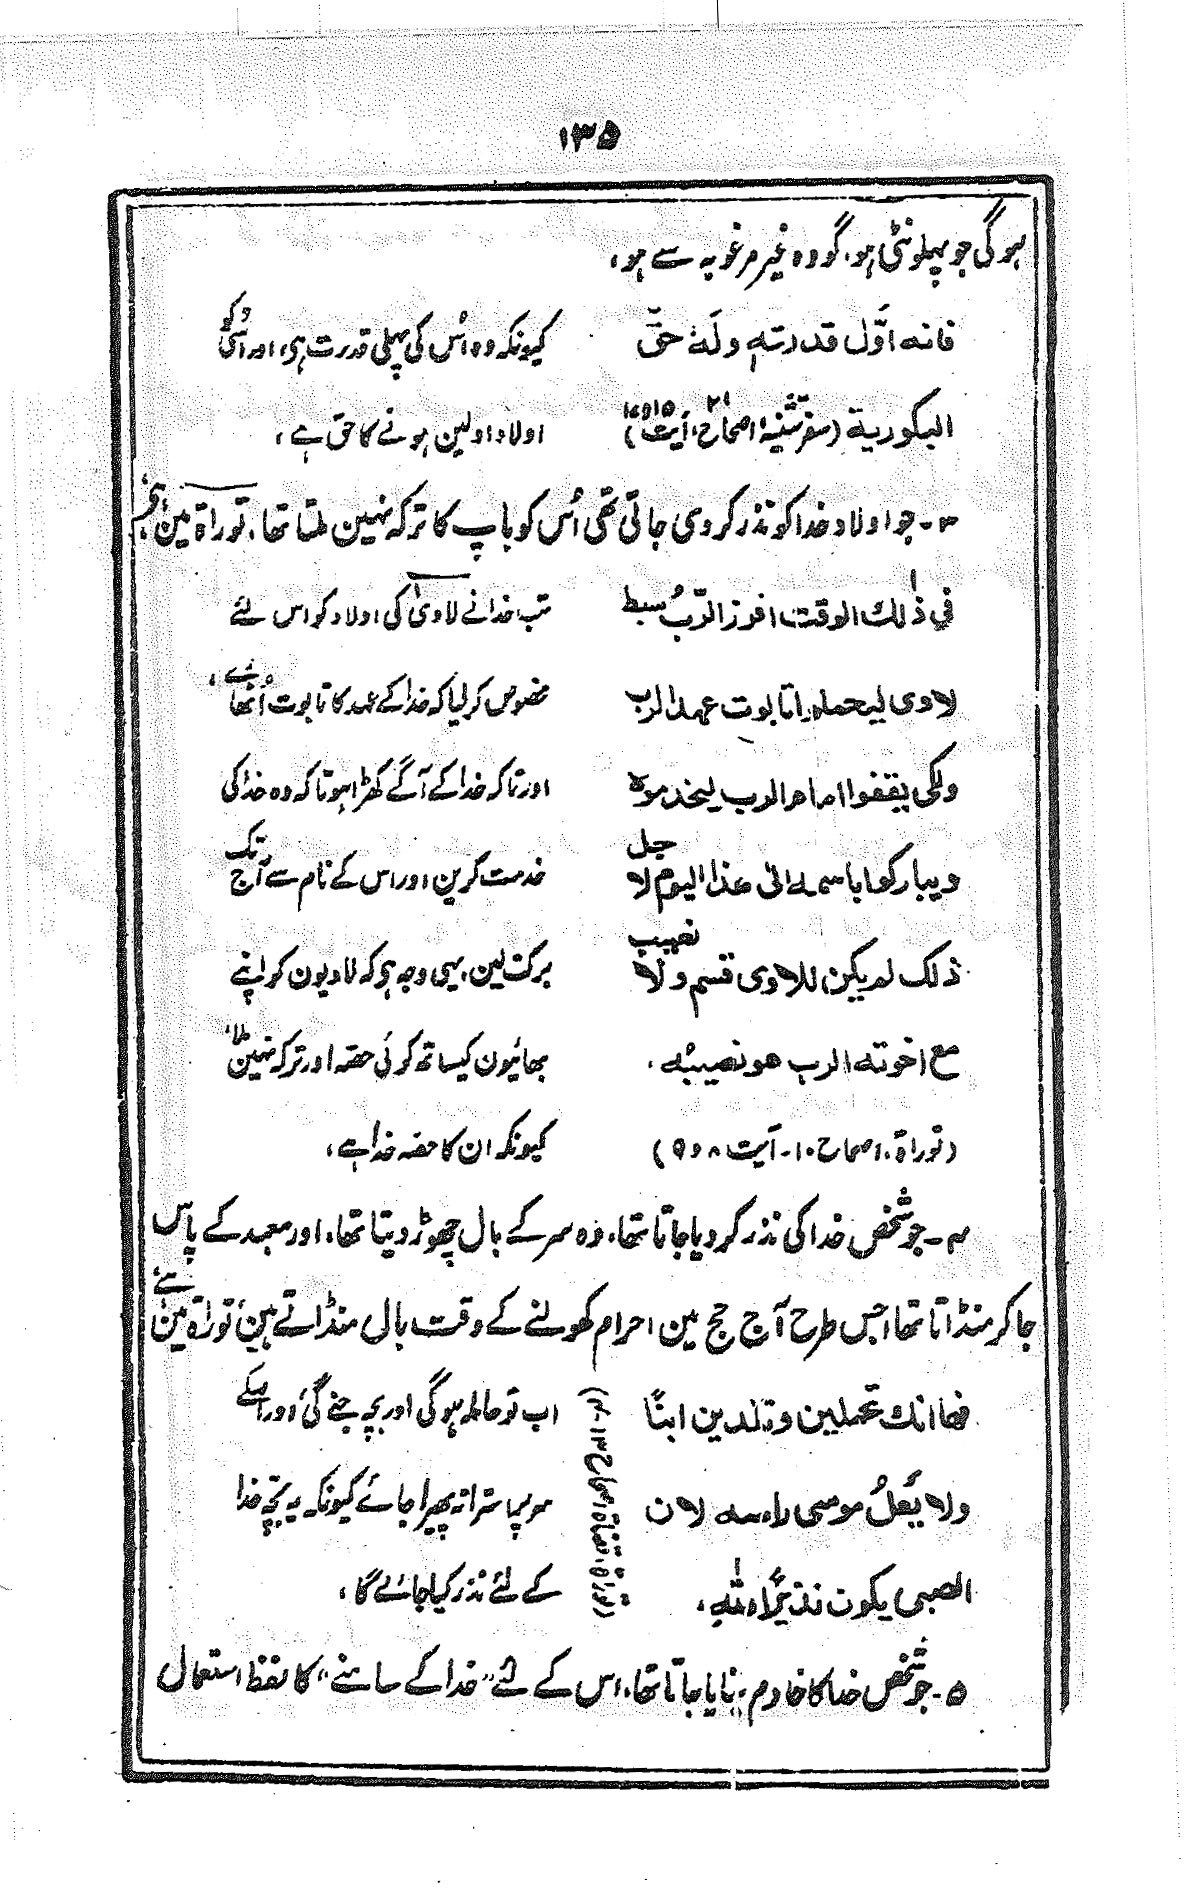 ۱۳۵
ہوگی جو پہلونٹی ہو، گو وہ غیر مرغوبہ سے ہو،
فانه اوّل قدرته ولَهٗ حقّ کیونکہ وہ اُس کی پہلی قدرت ہی، اور اُسی کو
البکوریة (سفر تثنیہ، اصحاح ۲۱، آیت ۱۵ و ۱۷) اولاد اولین ہونے کا حق ہے،
۳- جو اولاد خدا کو نذر کردی جاتی تھی اُس کو باپ کا ترکہ نہین ملتا تھا، توراۃ مین ہی،
فی ذٰلك الوقت افرز الرّبُ سبط تب خدا نے لاوی کی اولاد کو اس لئے
لاوی لیحملوا تابوت عهد الرب مخصوص کرلیا کہ خدا کے عہد کا تابوت اُٹھائے،
ولکی یقفوا امام الرب لیخدموه اور تاکہ خدا کے آگے کھڑا ہو تاکہ وہ خدا کی
ویبارکوا باسمه الی هذا الیوم لاجل خدمت کرین اور اس کے نام سے آج تک
ذلك لم یکن للاوی قسم ولا نصیب برکت لین، یہی وجہ ہی کہ لاویون کو اپنے
مع اخوته الرب هو نصیبُه. بھائیون کیساتھ کوئی حصہ اور ترکہ نہین ملا،
(توراۃ، اصحاح ۱۰- آیت ۸ و ۹) کیونکہ ان کا حصہ خدا ہے،
۴- جو شخص خدا کی نذر کردیا جاتا تھا، وہ سر کے بال چھوڑ دیتا تھا، اور معبد کے پاس
جا کر منڈاتا تھا جس طرح آج حج مین احرام کھولنے کے وقت بال منڈاتے ہین، توراۃ مین ہے،
فها انك تحملین وتلدین ابنًا اب تو حاملہ ہوگی اور بچہ جنے گی، اور اسکے
ولا یَعلُ موسی راسه لان سر پر استرا نہ پھیرا جائے کیونکہ یہ بچّہ خدا
الصبی یکون نذیرًا لله، کے لئے نذر کیا جائے گا،
(توراۃ، قضاۃ اصحاح ۱۳-۴)
۵- جو شخص خدا کا خادم بنایا جاتا تھا، اس کے لئے "خدا کے سامنے" کا لفظ استعمال